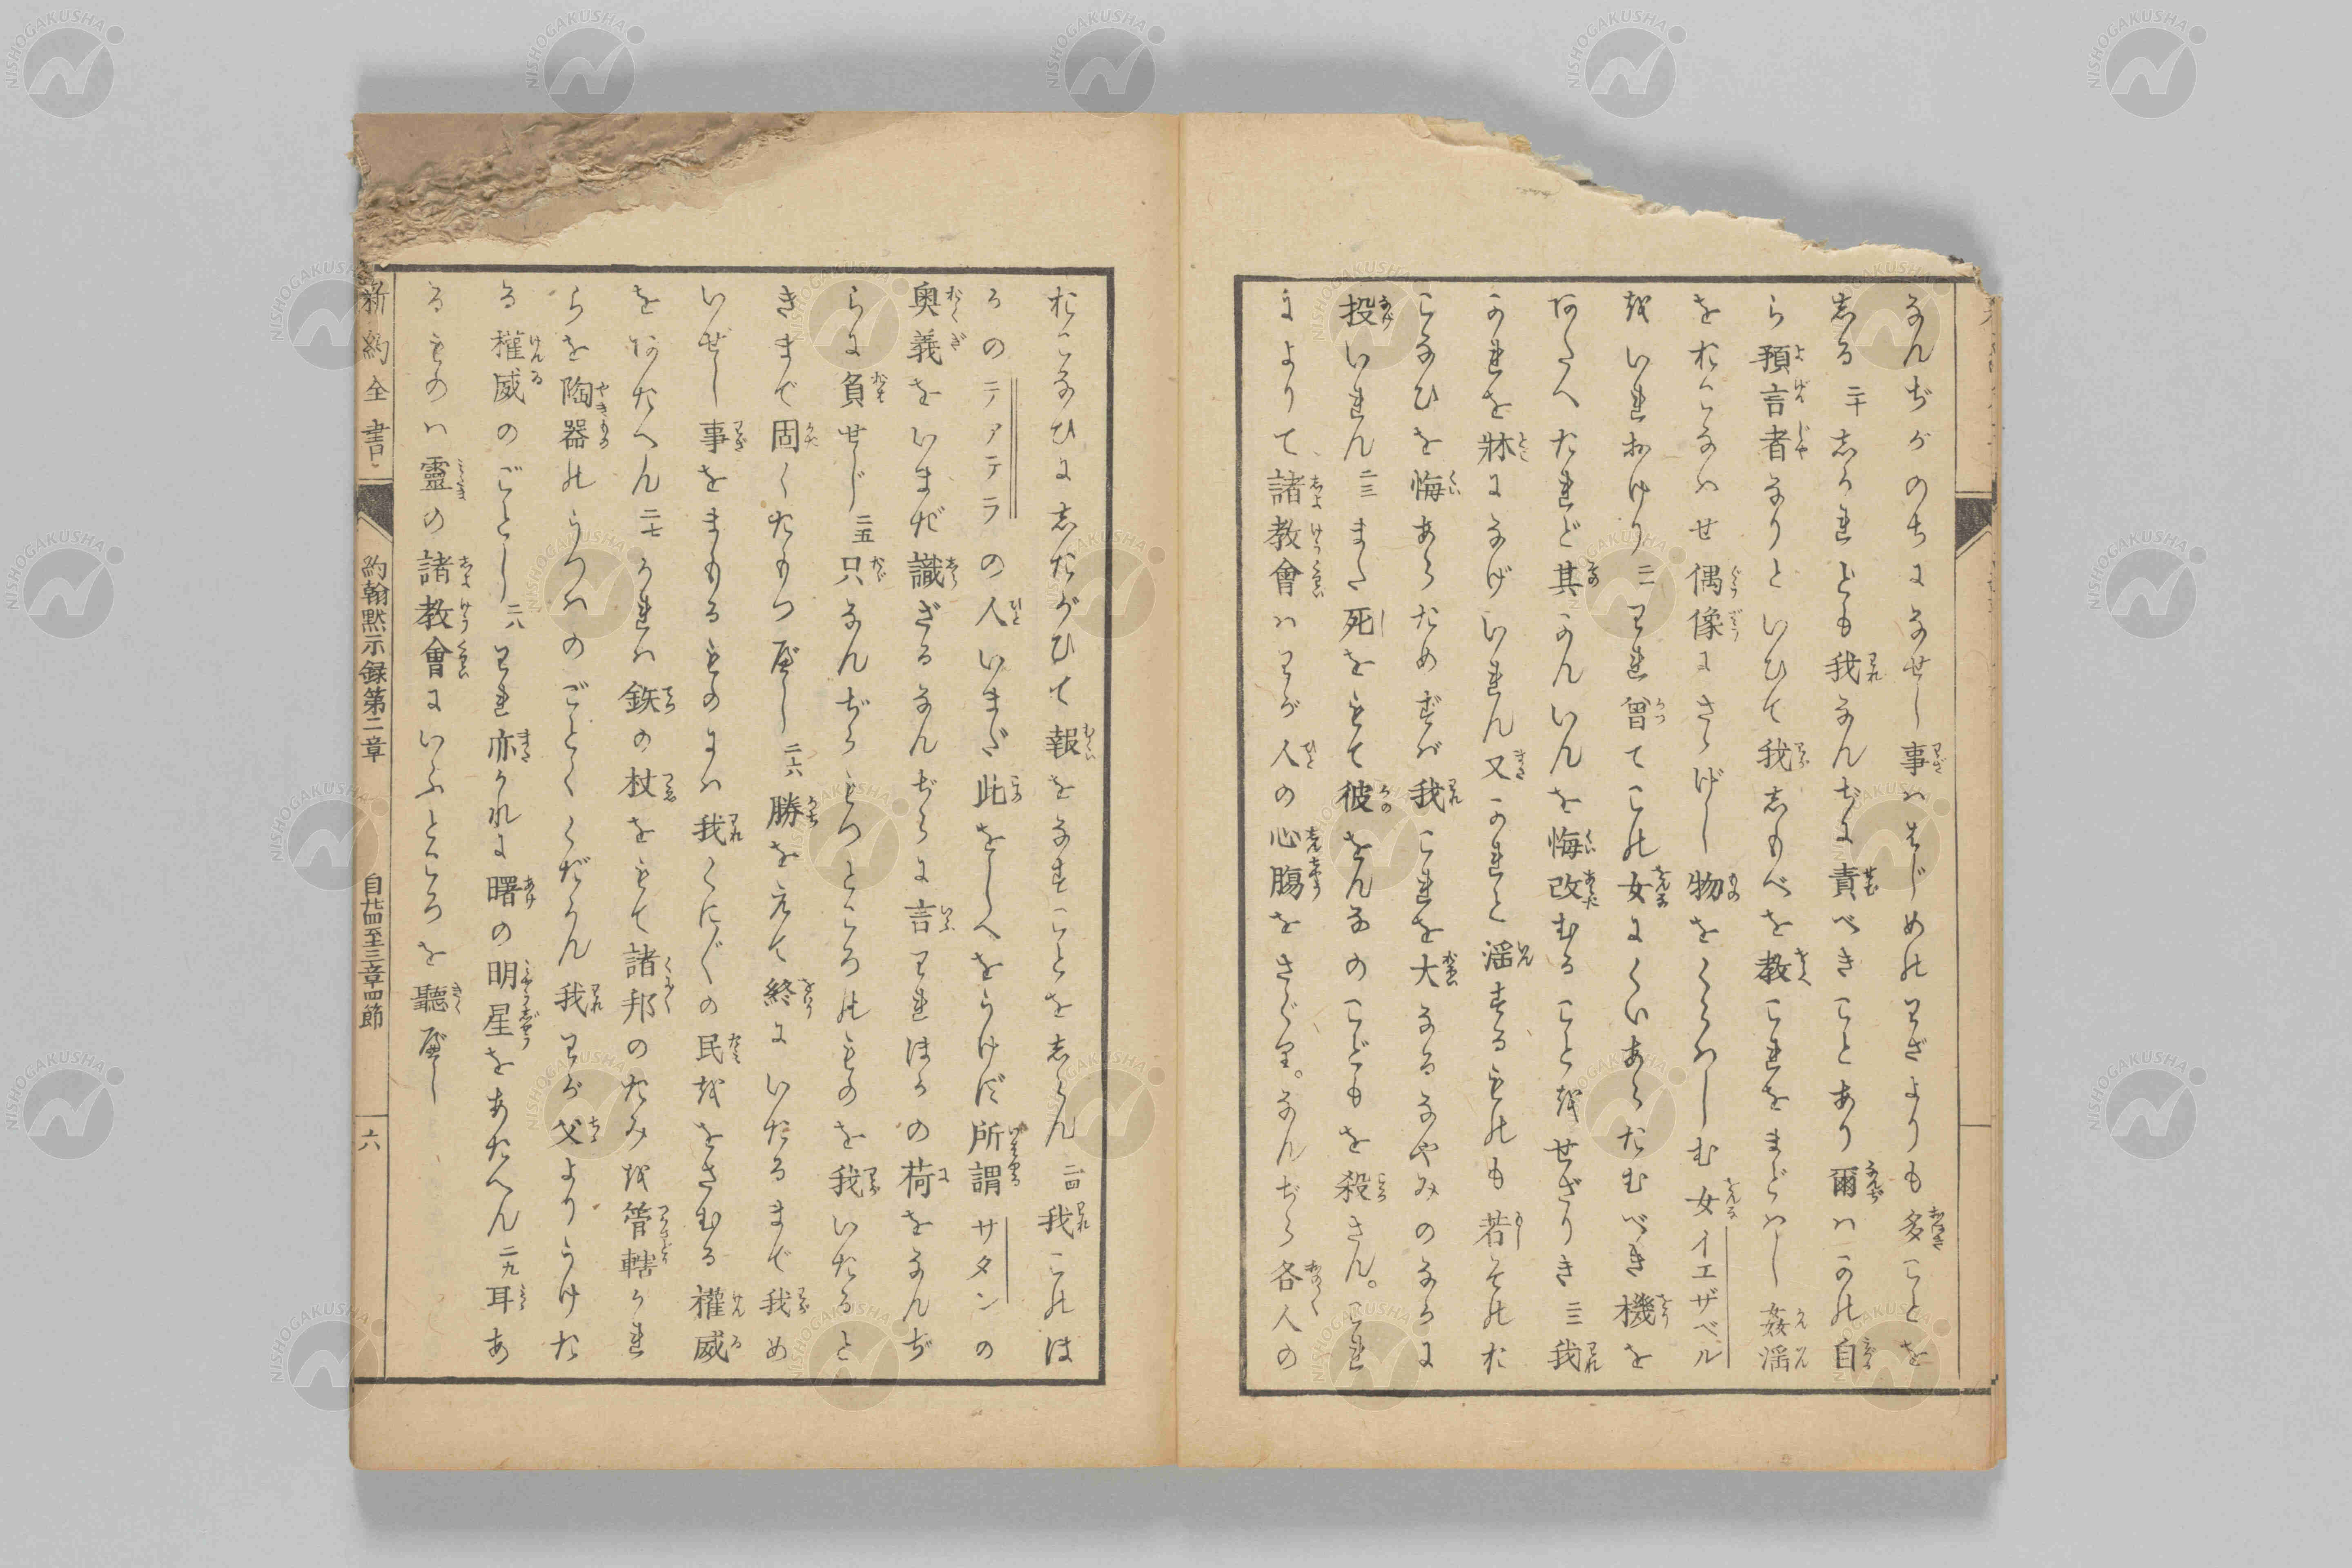 なんぢがのちになせし事ハはじめのわざよりも多ことを
志る 二十 志かれども我なんぢに責べきことあり爾ハかの自
ら預言者なりといひて我志もべを教これをまどハし姦淫
をおこなハせ偶像にさゝげし物をくらハしむ女イエザベル
をいれおけり 二一 われ曾てこの女にくいあらたむべき機を
あたへたれど其かんいんを悔改むることをせざりき 二二 我
かれを牀になげいれん又かれと淫するものも若そのお
こなひを悔あらためずバ我これを大なるなやみのなかに
投いれん 二三 また死をもて彼をんなのこどもを殺さん。これ
によりて諸教會ハわが人の心膓をさぐり。なんぢら各人の
おこなひに志たがひて報をなすことを志らん 二四 我このほ
かのテアテラの人いまだ此をしへをうけず所謂サタンの
奥義をいまだ識ざるなんぢらに言われほかの荷をなんぢ
らに負せじ 二五 只なんぢらもつところのものを我いたると
きまで固くたもつ可し 二六 勝をえて終にいたるまで我め
いぜし事をまもるものにハ我くにぐの民ををさむる權威
をあたへん 二七 かれハ鉄の杖をもて諸邦のたみを管轄かれ
らを陶器のうつハのごとくくだかん我わが父よりうけた
る權威のごとし 二八 われ亦かれに曙の明星をあたへん 二九 耳あ
るものハ靈の諸教會にいふところを聽可し
新約全書 約翰黙示録第二章 自廿四至三章四節 六
NISHOGAKUSHA